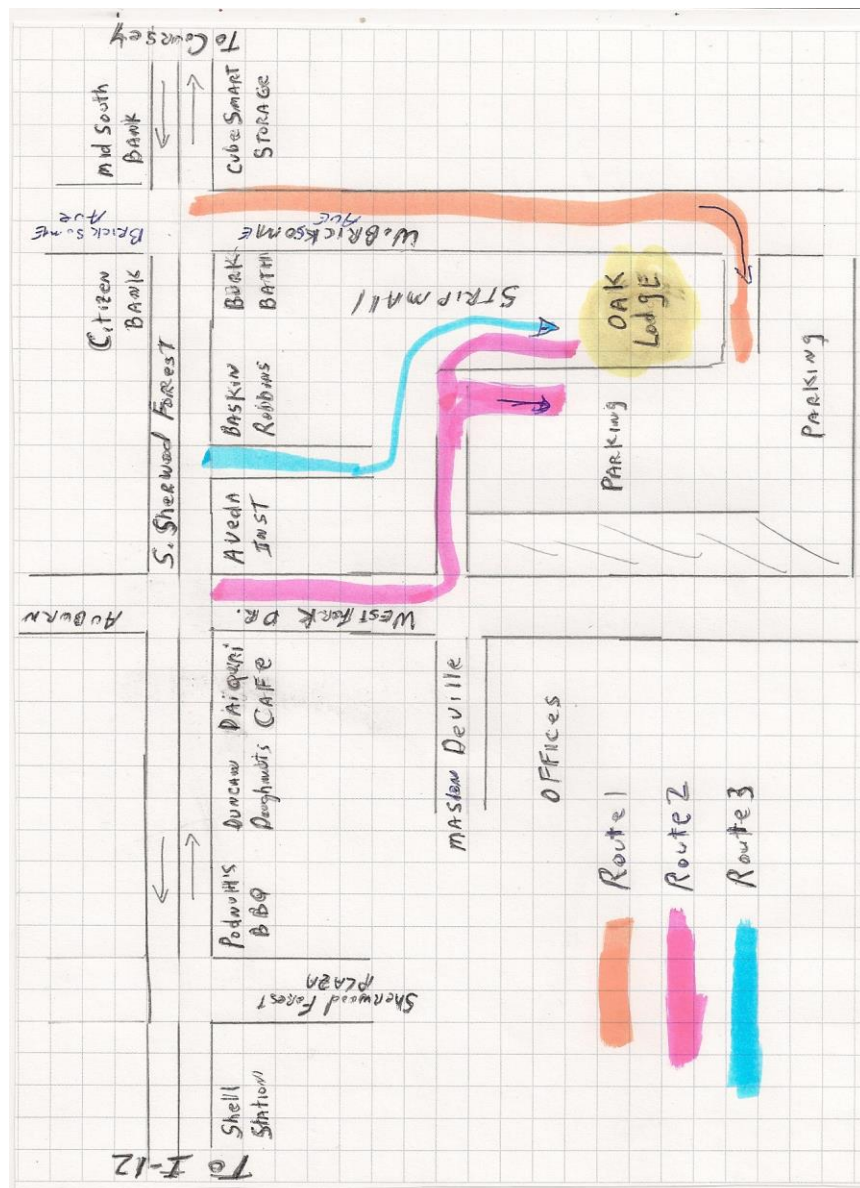 To Coursey
Mid South
BANK
CubeSMART
STORAGE
BRICKSOMME
AVE
W. BRICKSOMME
AVE
Citizen
BANK
S. Sherwood Forest
BURK.
BATH
STRIP MAll
OAK
Lodge
BASKIN
Robbins
PARKING
PARKING
AvedA
INST
AuBuRN
West Fork DR.
DAiQuiRi
CAFe
DUNCAN
Doughnuts
MASlen DeVille
OFFICES
PodNuH'S
BBQ
Sherwood Forest
PLAZA
Shell
STATION
To I-12
Route 1
Route 2
Route 3